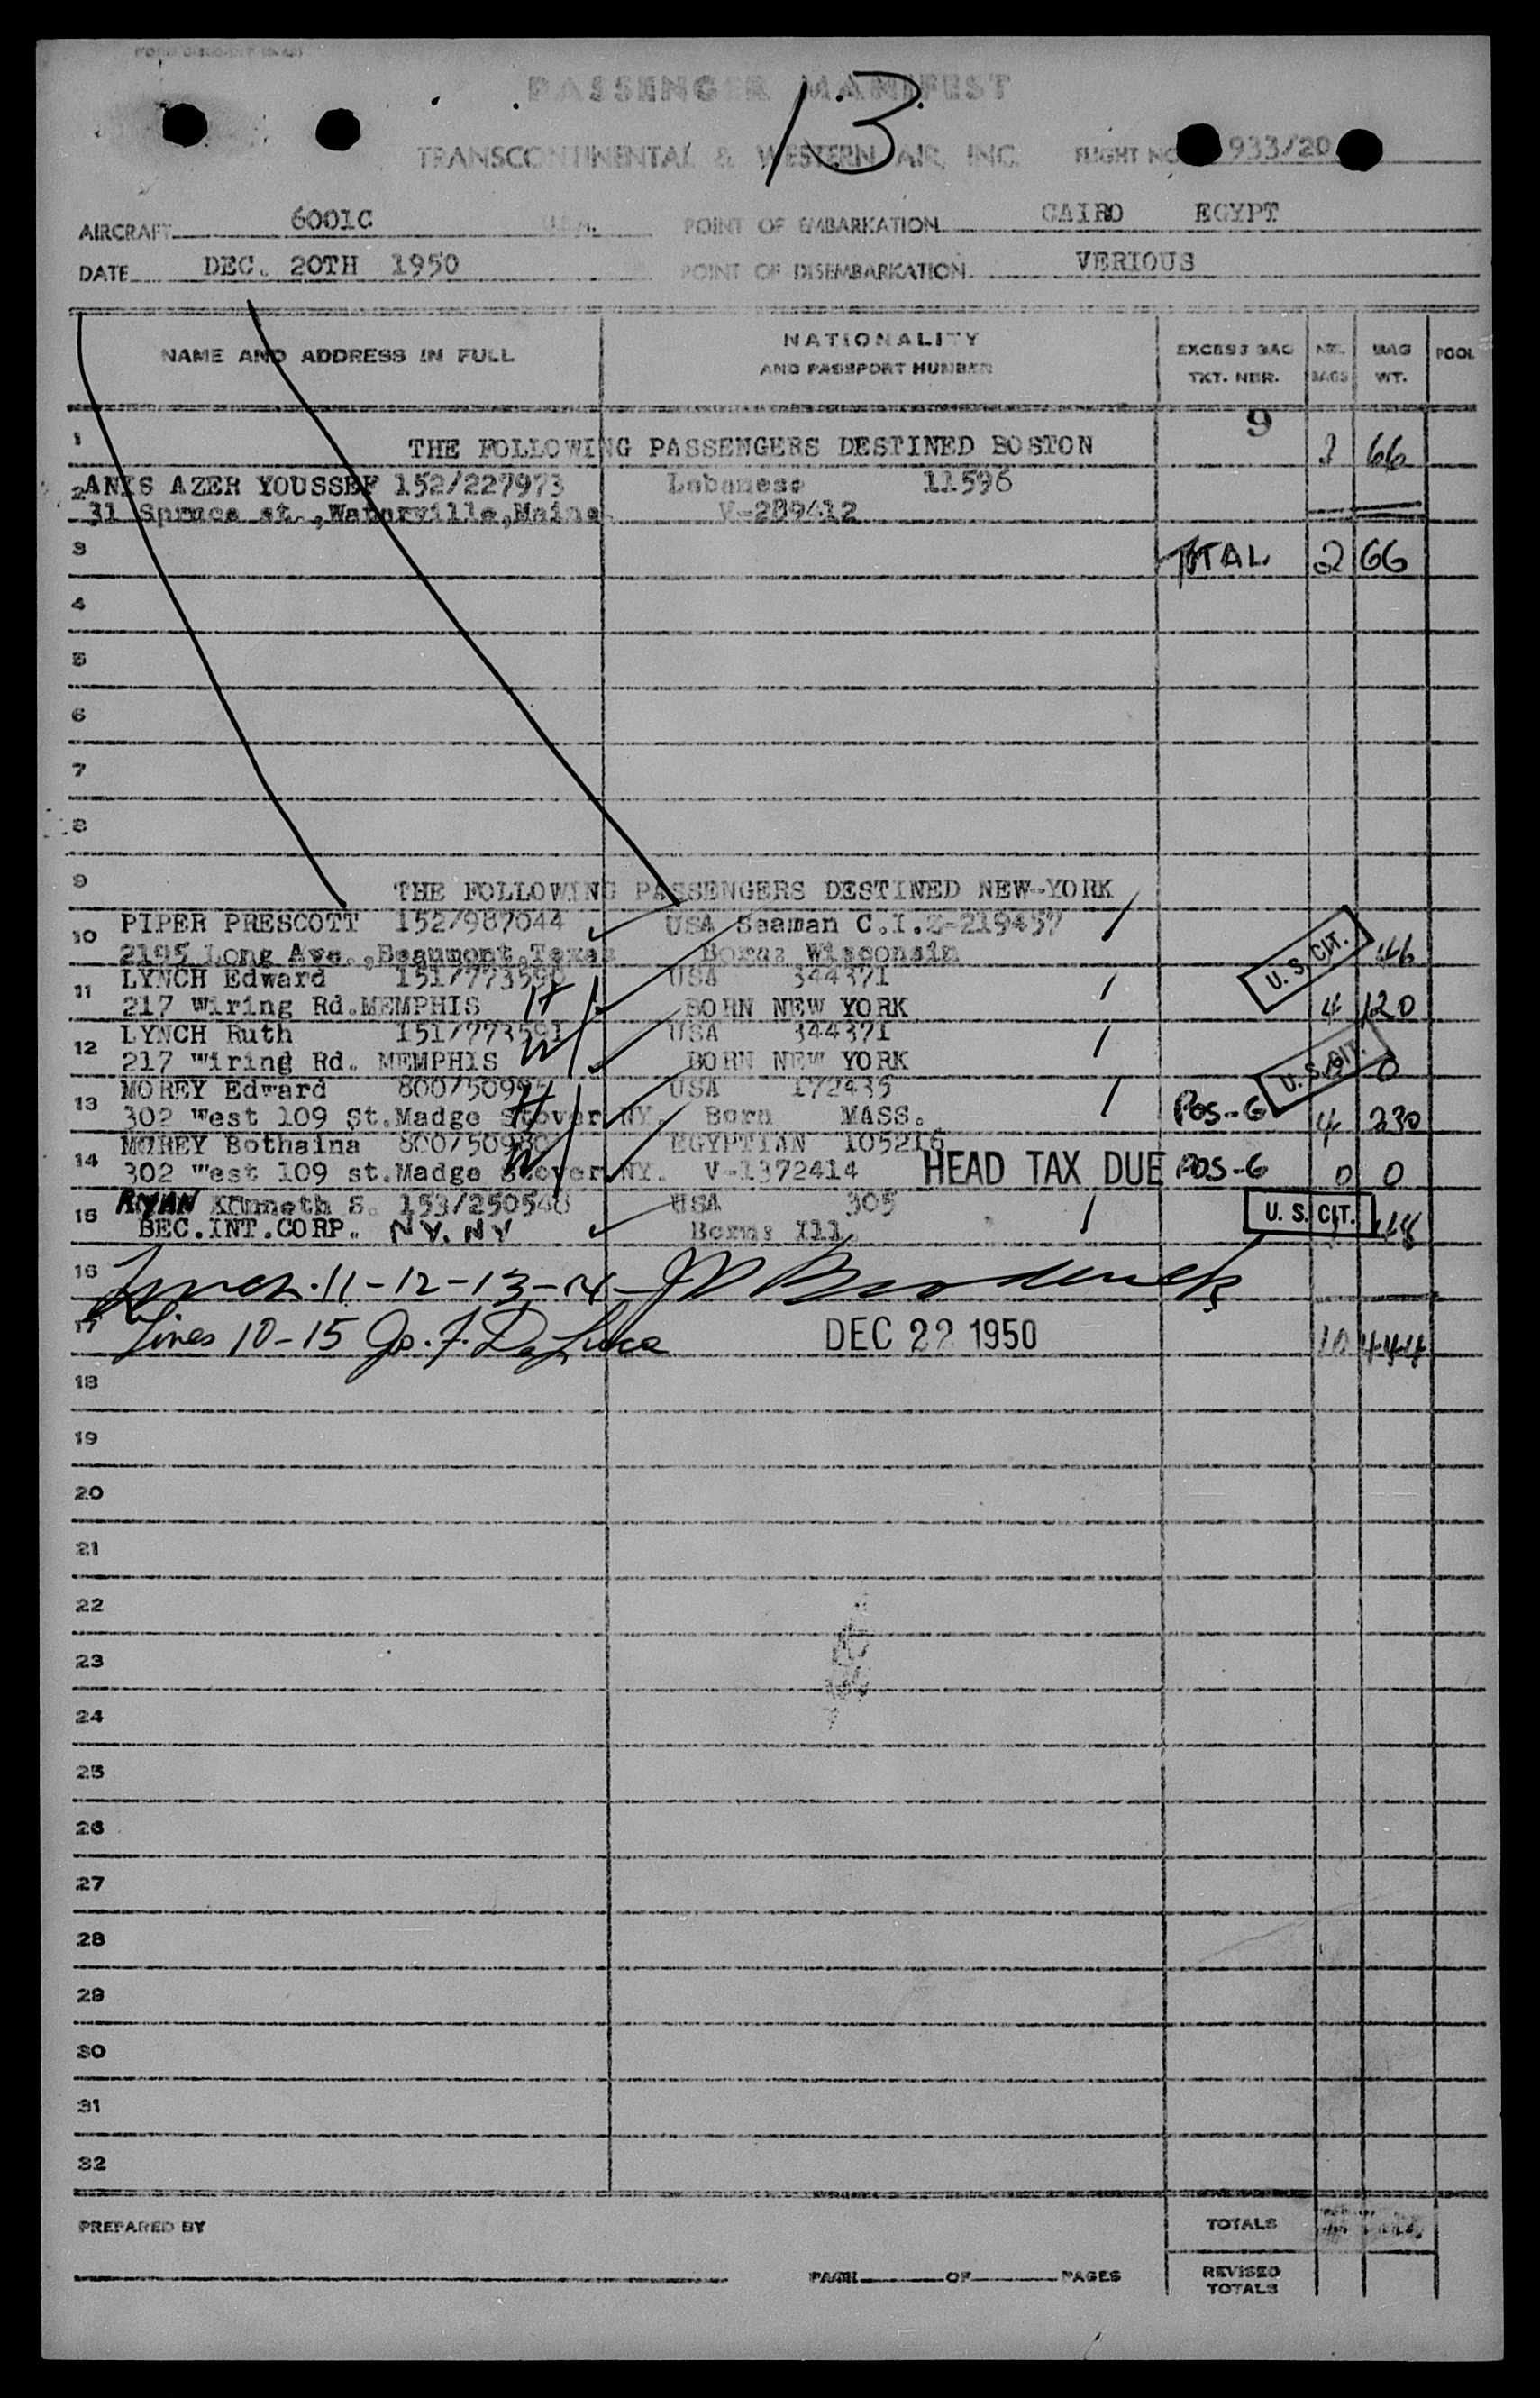 PASSENGER MANIFEST
13
TRANSCONTINENTAL & WESTERN AIR, INC. FLIGHT NO. 933/20
AIRCRAFT 6001C U.S.A. POINT OF EMBARKATION CAIRO EGYPT
DATE DEC. 20TH 1950 POINT OF DISEMBARKATION VERIOUS
NAME AND ADDRESS IN FULL NATIONALITY AND PASSPORT NUMBER EXCESS BAG TKT. NBR. NBR. BAGS BAG WT. POOL
9
1 THE FOLLOWING PASSENGERS DESTINED BOSTON 66
2 ANIS AZER YOUSSEF 152/227973 Lebanese 11596
31 Spruce st.,Waterville,Maine V-289412
3 TOTAL 2 66
4
5
6
7
8
9 THE FOLLOWING PASSENGERS DESTINED NEW-YORK
10 PIPER PRESCOTT 152/987044 USA Seaman C.I.Z-219457
2195 Long Ave.,Beaumont,Texas Born: Wisconsin U. S. CIT. 46
11 LYNCH Edward 151/773590 USA 344371
217 Wiring Rd.MEMPHIS H BORN NEW YORK 4 120
12 LYNCH Ruth 151/773591 USA 344371
217 Wiring Rd. MEMPHIS W BORN NEW YORK U. S. CIT. 0
13 MOREY Edward USA 172435
302 West 109 St.Madge Stover NY. Born MASS. Pos-6 4 230
14 MOREY Bothaina EGYPTIAN 105216
302 West 109 st.Madge Stover NY. V-1372414 HEAD TAX DUE Pos-6 0 0
15 RYAN Kenneth S. 153/250548 USA 305
BEC.INT.CORP. NY. NY Born: Ill. U. S. CIT.
16 11-12-13-14
17 Lines 10-15 Jo. F. DeLuca DEC 22 1950 10 444
18
19
20
21
22
23
24
25
26
27
28
29
30
31
32
PREPARED BY TOTALS
PAGE OF PAGES REVISED TOTALS